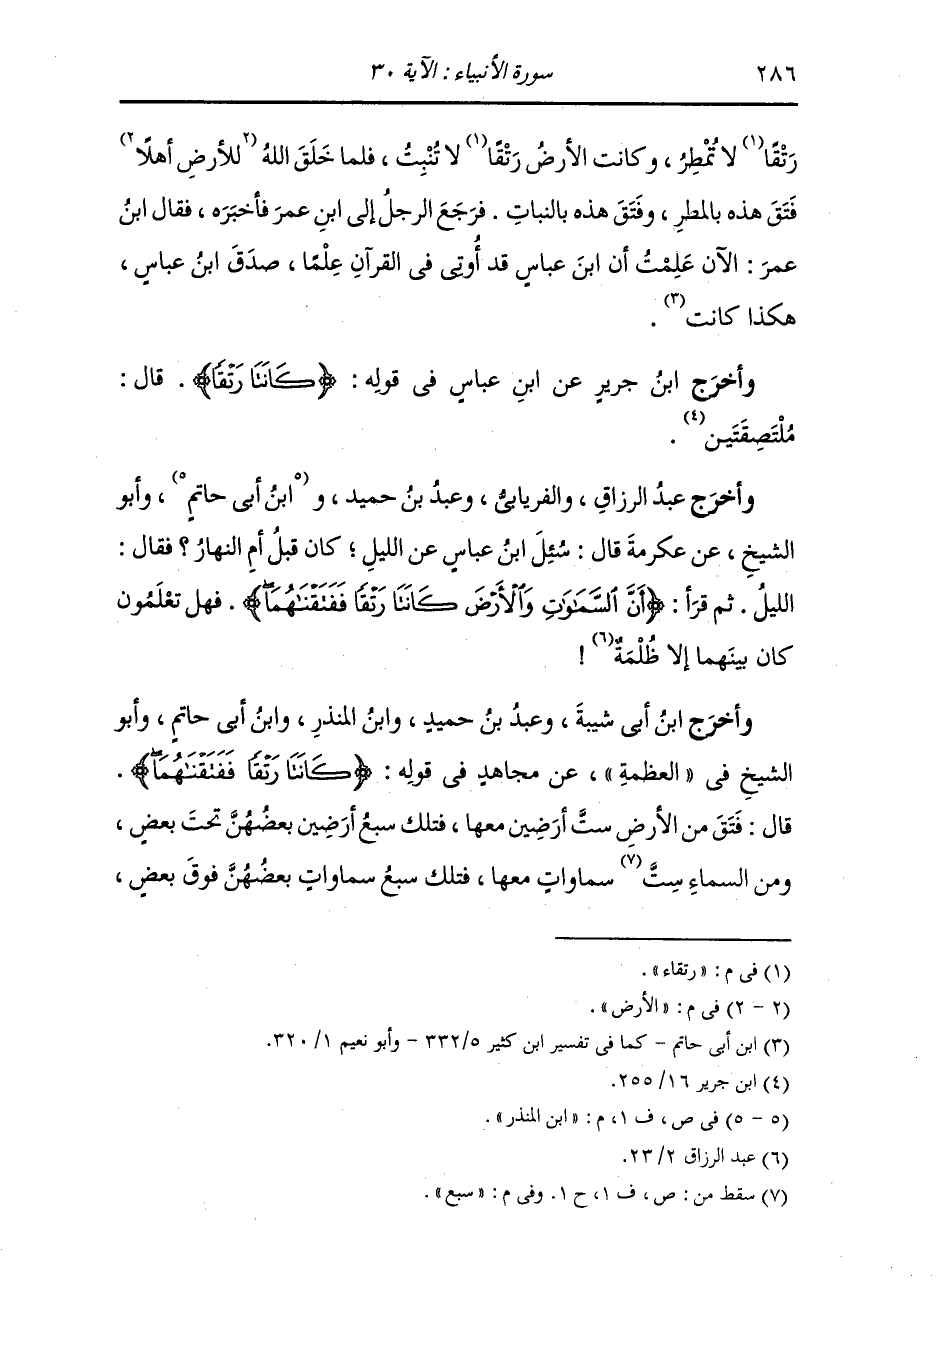 ٢٨٦ سورة الأنبياء : الآية ٣٠
رَتْقًا(١) لا تُمْطِرُ ، وكانت الأرضُ رَتْقًا(١) لا تُنْبِتُ ، فلما خَلَق اللهُ (٢للأرضِ أهلًا٢)
فَتَقَ هذه بالمطرِ ، وفَتَقَ هذه بالنباتِ . فرَجَعَ الرجلُ إلى ابنِ عمرَ فأخبَرَه ، فقال ابنُ
عمرَ : الآن عَلِمْتُ أن ابنَ عباسٍ قد أُوتِى فى القرآنِ عِلْمًا ، صدَقَ ابنُ عباسٍ ،
هكذا كانت(٣) .
وأخرَج ابنُ جريرٍ عن ابنِ عباسٍ فى قولِه : ﴿كَانَتَا رَتْقًا﴾ . قال :
مُلْتَصِقَتَين(٤) .
وأخرَج عبدُ الرزاقِ ، والفريابىُّ ، وعبدُ بنُ حميد ، و (٥ابنُ أبى حاتمٍ٥) ، وأبو
الشيخِ ، عن عكرمةَ قال : سُئِلَ ابنُ عباسٍ عن الليلِ ؛ كان قبلُ أم النهارُ ؟ فقال :
الليلُ . ثم قرَأ : ﴿أَنَّ ٱلسَّمَٰوَٰتِ وَٱلْأَرْضَ كَانَتَا رَتْقًا فَفَتَقْنَٰهُمَا﴾ . فهل تعْلَمُون
كان بينَهما إلا ظُلْمَةٌ(٦) !
وأخرَج ابنُ أبى شيبةَ ، وعبدُ بنُ حميدٍ ، وابنُ المنذرِ ، وابنُ أبى حاتمٍ ، وأبو
الشيخِ فى « العظمةِ » ، عن مجاهدٍ فى قولِه : ﴿كَانَتَا رَتْقًا فَفَتَقْنَٰهُمَا﴾ .
قال : فَتَقَ من الأرضِ ستَّ أرَضِين معها ، فتلك سبعُ أرَضِين بعضُهُنَّ تحتَ بعضٍ ،
ومن السماءِ سِتَّ(٧) سماواتٍ معها ، فتلك سبعُ سماواتٍ بعضُهُنَّ فوقَ بعضٍ ،
(١) فى م : « رتقاء » .
(٢ - ٢) فى م : « الأرض » .
(٣) ابن أبى حاتم - كما فى تفسير ابن كثير ٥/ ٣٣٢ - وأبو نعيم ١/ ٣٢٠.
(٤) ابن جرير ١٦/ ٢٥٥.
(٥ - ٥) فى ص ، ف ١، م : « ابن المنذر » .
(٦) عبد الرزاق ٢/ ٢٣.
(٧) سقط من : ص ، ف ١، ح ١. وفى م : « سبع » .